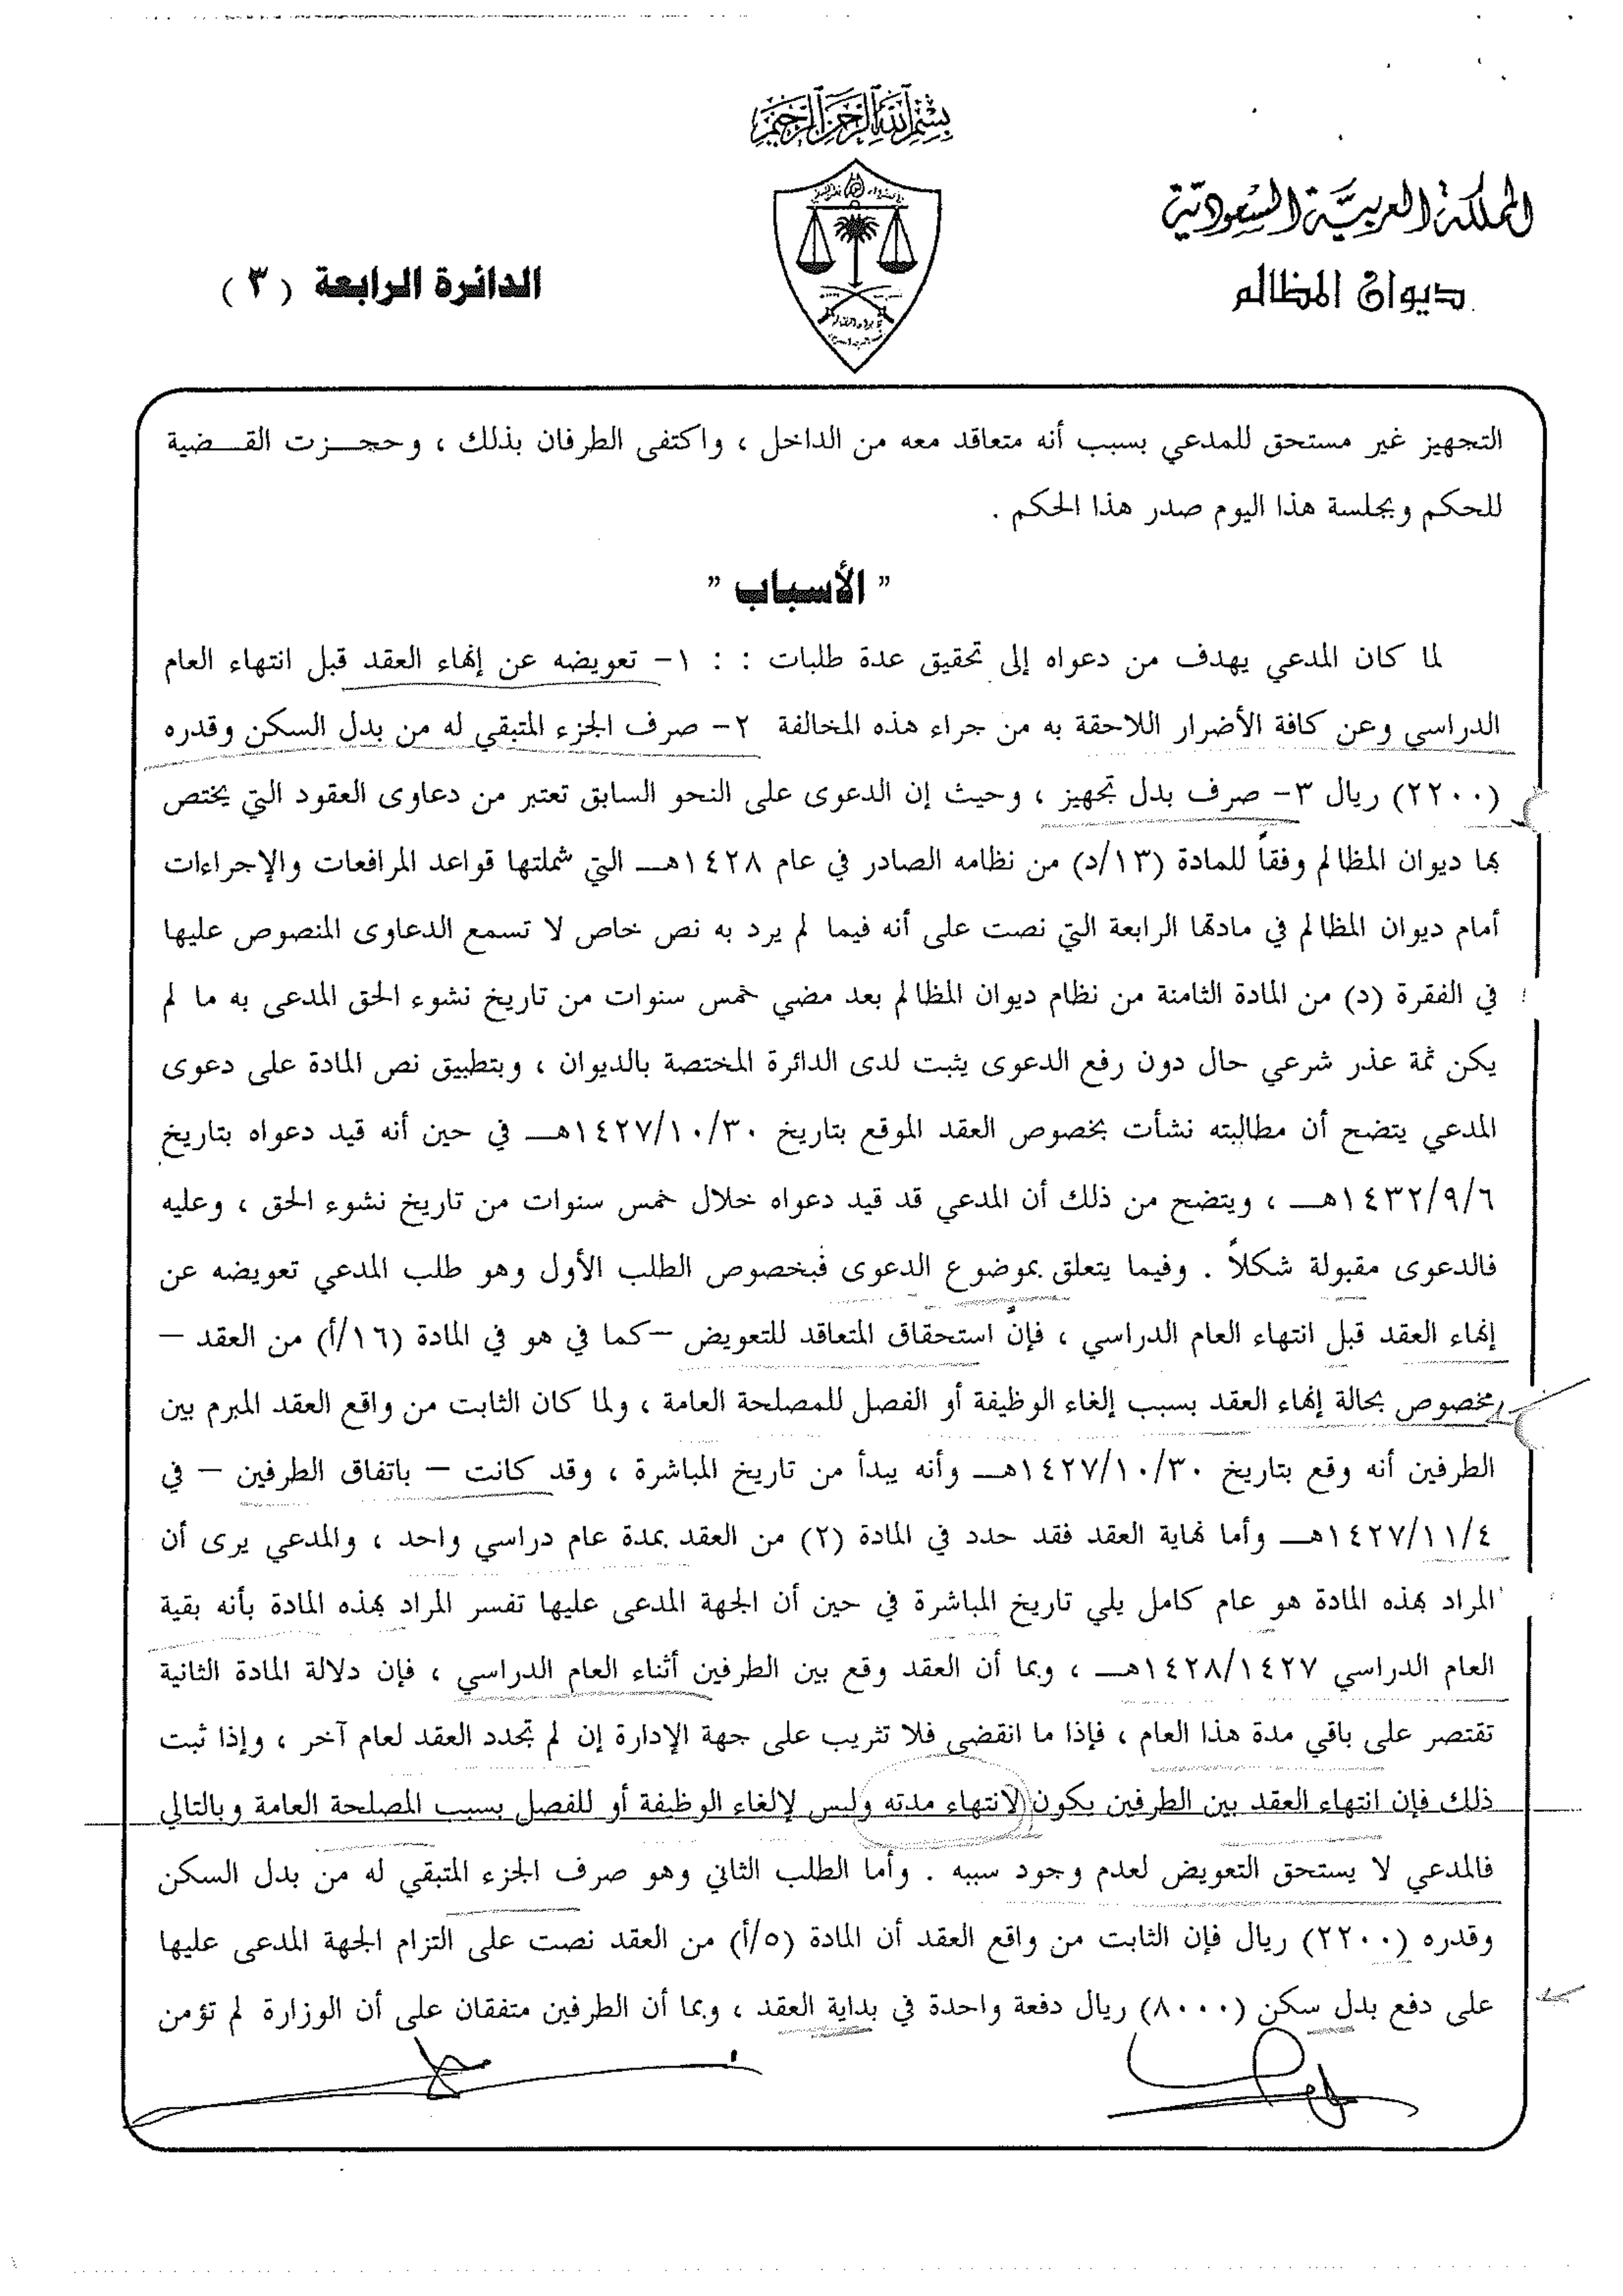 بسم الله الرحمن الرحيم
المملكة العربية السعودية
ديوان المظالم
الدائرة الرابعة ( ٣ )
التجهيز غير مستحق للمدعي بسبب أنه متعاقد معه من الداخل ، واكتفى الطرفان بذلك ، وحجزت القضية
للحكم وبجلسة هذا اليوم صدر هذا الحكم .
" الأسباب "
لما كان المدعي يهدف من دعواه إلى تحقيق عدة طلبات : : ١- تعويضه عن إنهاء العقد قبل انتهاء العام
الدراسي وعن كافة الأضرار اللاحقة به من جراء هذه المخالفة ٢- صرف الجزء المتبقي له من بدل السكن وقدره
(٢٢٠٠) ريال ٣- صرف بدل تجهيز ، وحيث إن الدعوى على النحو السابق تعتبر من دعاوى العقود التي يختص
بها ديوان المظالم وفقاً للمادة (١٣/د) من نظامه الصادر في عام ١٤٢٨هـ التي شملتها قواعد المرافعات والإجراءات
أمام ديوان المظالم في مادتها الرابعة التي نصت على أنه فيما لم يرد به نص خاص لا تسمع الدعاوى المنصوص عليها
في الفقرة (د) من المادة الثامنة من نظام ديوان المظالم بعد مضي خمس سنوات من تاريخ نشوء الحق المدعى به ما لم
يكن ثمة عذر شرعي حال دون رفع الدعوى يثبت لدى الدائرة المختصة بالديوان ، وبتطبيق نص المادة على دعوى
المدعي يتضح أن مطالبته نشأت بخصوص العقد الموقع بتاريخ ١٤٢٧/١٠/٣٠هـ في حين أنه قيد دعواه بتاريخ
١٤٣٢/٩/٦هـ ، ويتضح من ذلك أن المدعي قد قيد دعواه خلال خمس سنوات من تاريخ نشوء الحق ، وعليه
فالدعوى مقبولة شكلاً . وفيما يتعلق بموضوع الدعوى فبخصوص الطلب الأول وهو طلب المدعي تعويضه عن
إنهاء العقد قبل انتهاء العام الدراسي ، فإن استحقاق المتعاقد للتعويض –كما في هو في المادة (١٦/أ) من العقد –
مخصوص بحالة إنهاء العقد بسبب إلغاء الوظيفة أو الفصل للمصلحة العامة ، ولما كان الثابت من واقع العقد المبرم بين
الطرفين أنه وقع بتاريخ ١٤٢٧/١٠/٣٠هـ وأنه يبدأ من تاريخ المباشرة ، وقد كانت – باتفاق الطرفين – في
١٤٢٧/١١/٤هـ وأما نهاية العقد فقد حدد في المادة (٢) من العقد بمدة عام دراسي واحد ، والمدعي يرى أن
المراد بهذه المادة هو عام كامل يلي تاريخ المباشرة في حين أن الجهة المدعى عليها تفسر المراد بهذه المادة بأنه بقية
العام الدراسي ١٤٢٨/١٤٢٧هـ ، وبما أن العقد وقع بين الطرفين أثناء العام الدراسي ، فإن دلالة المادة الثانية
تقتصر على باقي مدة هذا العام ، فإذا ما انقضى فلا تثريب على جهة الإدارة إن لم تجدد العقد لعام آخر ، وإذا ثبت
ذلك فإن انتهاء العقد بين الطرفين يكون لانتهاء مدته وليس لإلغاء الوظيفة أو للفصل بسبب المصلحة العامة وبالتالي
فالمدعي لا يستحق التعويض لعدم وجود سببه . وأما الطلب الثاني وهو صرف الجزء المتبقي له من بدل السكن
وقدره (٢٢٠٠) ريال فإن الثابت من واقع العقد أن المادة (٥/أ) من العقد نصت على التزام الجهة المدعى عليها
على دفع بدل سكن (٨٠٠٠) ريال دفعة واحدة في بداية العقد ، وبما أن الطرفين متفقان على أن الوزارة لم تؤمن